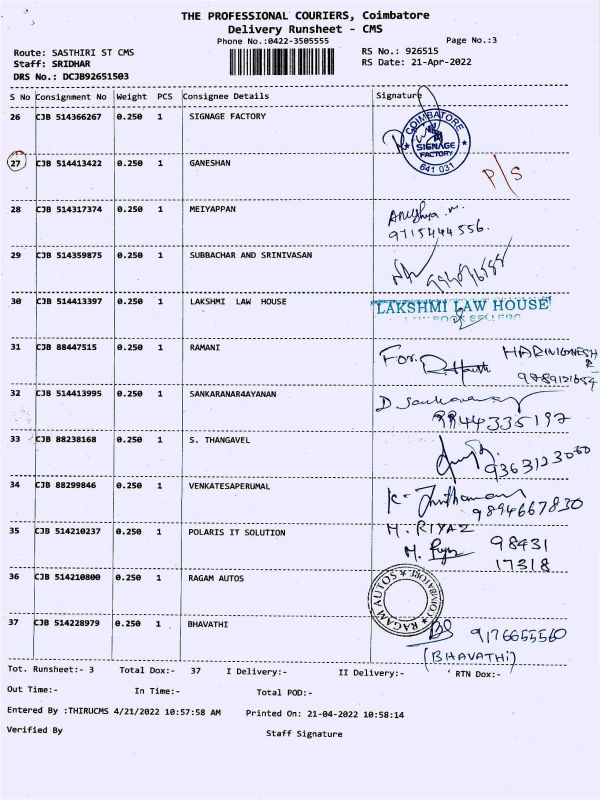 THE PROFESSIONAL COURIERS, Coimbatore
Delivery Runsheet - CMS
Phone No.:0422-3505555
Page No.:3
Route: SASTHIRI ST CMS
RS No.: 926515
Staff: SRIDHAR
RS Date: 21-Apr-2022
DRS No.: DCJB92651503
S No Consignment No Weight PCS Consignee Details Signature
26 CJB 514366267 0.250 1 SIGNAGE FACTORY
COIMBATORE
SIGNAGE
FACTORY
641 031
27 CJB 514413422 0.250 1 GANESHAN P/S
28 CJB 514317374 0.250 1 MEIYAPPAN Anushya.m.
9715444556.
29 CJB 514359875 0.250 1 SUBBACHAR AND SRINIVASAN
30 CJB 514413397 0.250 1 LAKSHMI LAW HOUSE LAKSHMI LAW HOUSE
31 CJB 88447515 0.250 1 RAMANI For.
32 CJB 514413995 0.250 1 SANKARANAR4AYANAN
9944335192
33 CJB 88238168 0.250 1 S. THANGAVEL
9363123060
34 CJB 88299846 0.250 1 VENKATESAPERUMAL
9894667830
35 CJB 514210237 0.250 1 POLARIS IT SOLUTION M. RIYAZ
98431
17318
36 CJB 514210800 0.250 1 RAGAM AUTOS
RAGAM AUTOS * COIMBATORE *
37 CJB 514228979 0.250 1 BHAVATHI 9176655560
(BHAVATHI)
Tot. Runsheet:- 3 Total Dox:- 37 I Delivery:- II Delivery:- RTN Dox:-
Out Time:- In Time:- Total POD:-
Entered By :THIRUCMS 4/21/2022 10:57:58 AM Printed On: 21-04-2022 10:58:14
Verified By Staff Signature